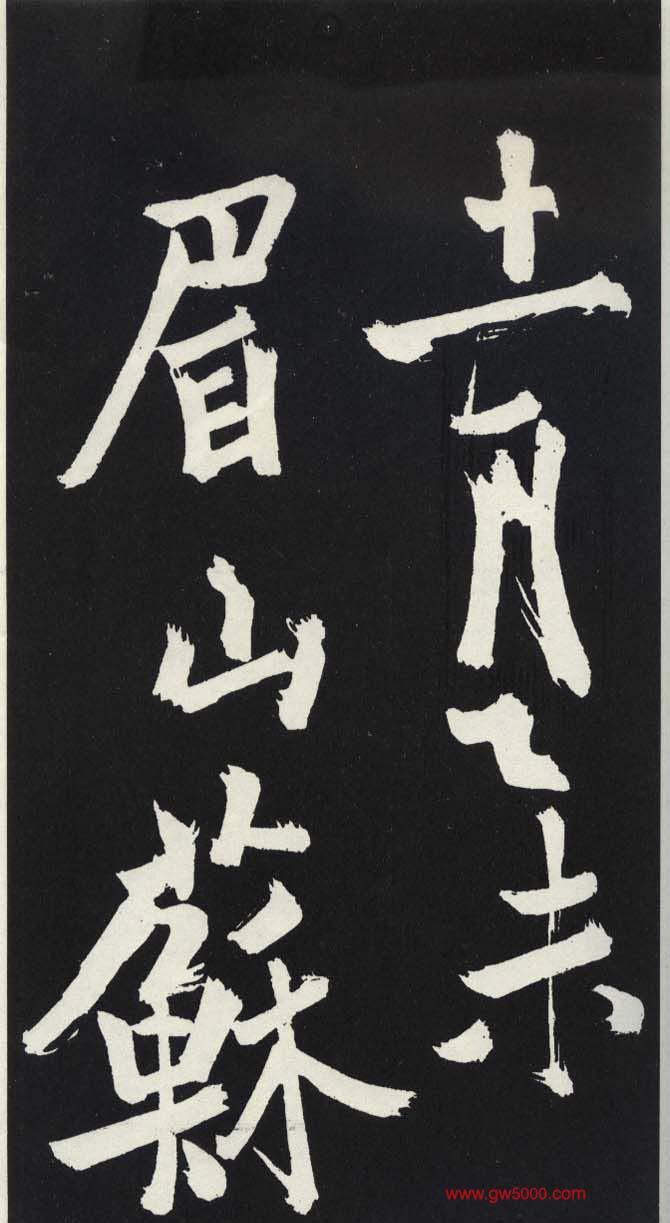 十一月乙未
眉山蘇
www.gw5000.com